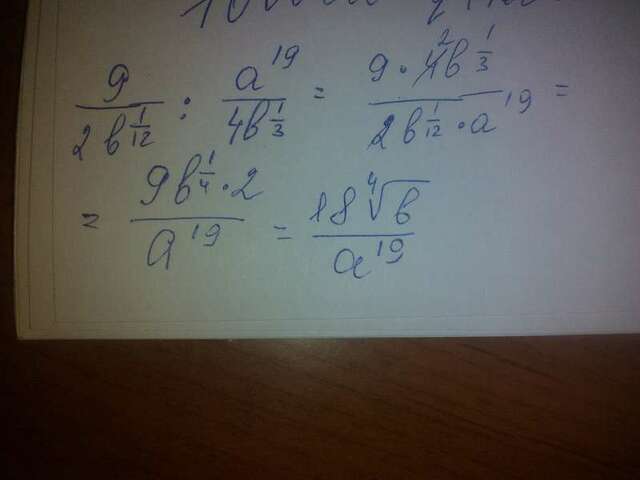 9/(2b^(1/12)) : a^19/(4b^(1/3)) = (9·4b^(1/3))/(2b^(1/12)·a^19) =
= (9b^(1/4)·2)/a^19 = (18∜b)/a^19